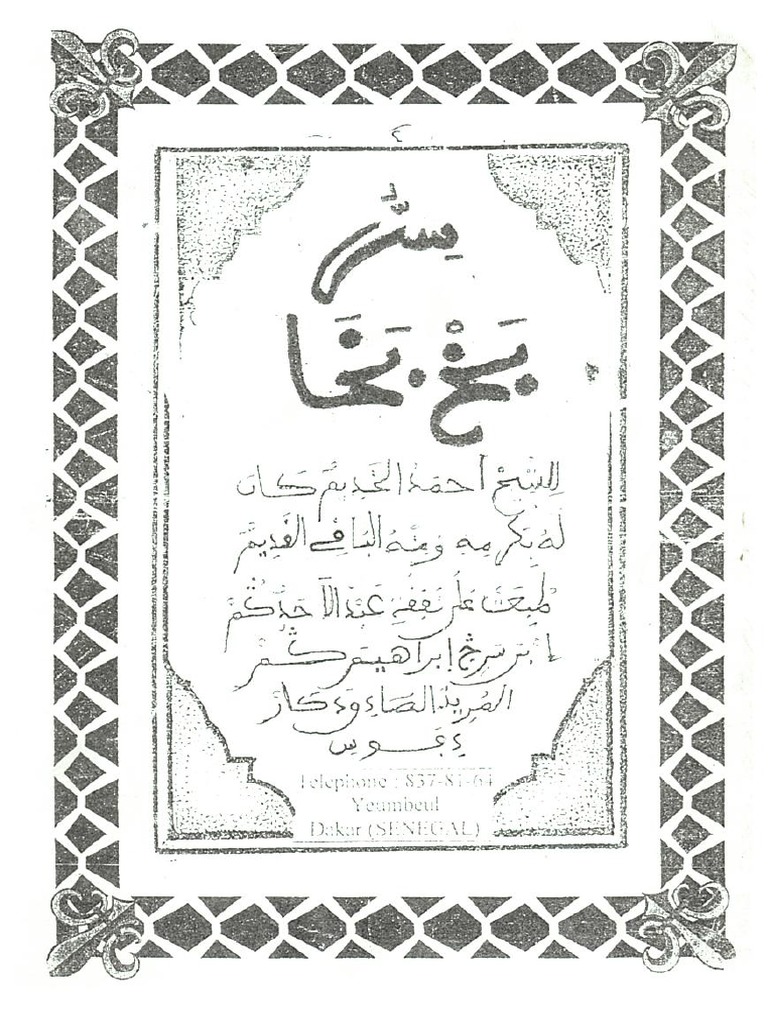 ٤
سِرُّ
بَخْ بَخَا
للشيخْ أحمدُ الخديمُ كان
لَهُ بِكرمِه وَمنّهُ البَافِے القَدِيمُ
طُبِعَتْ عَلَى نَفَقَةِ عَبْدِ الأَحَدْ
ابن سرج إبراهيم
المُرِيدُ الصَّادِق دَكَار
Telephone : 837-81-64
Yeumbeul
Dakar (SENEGAL)